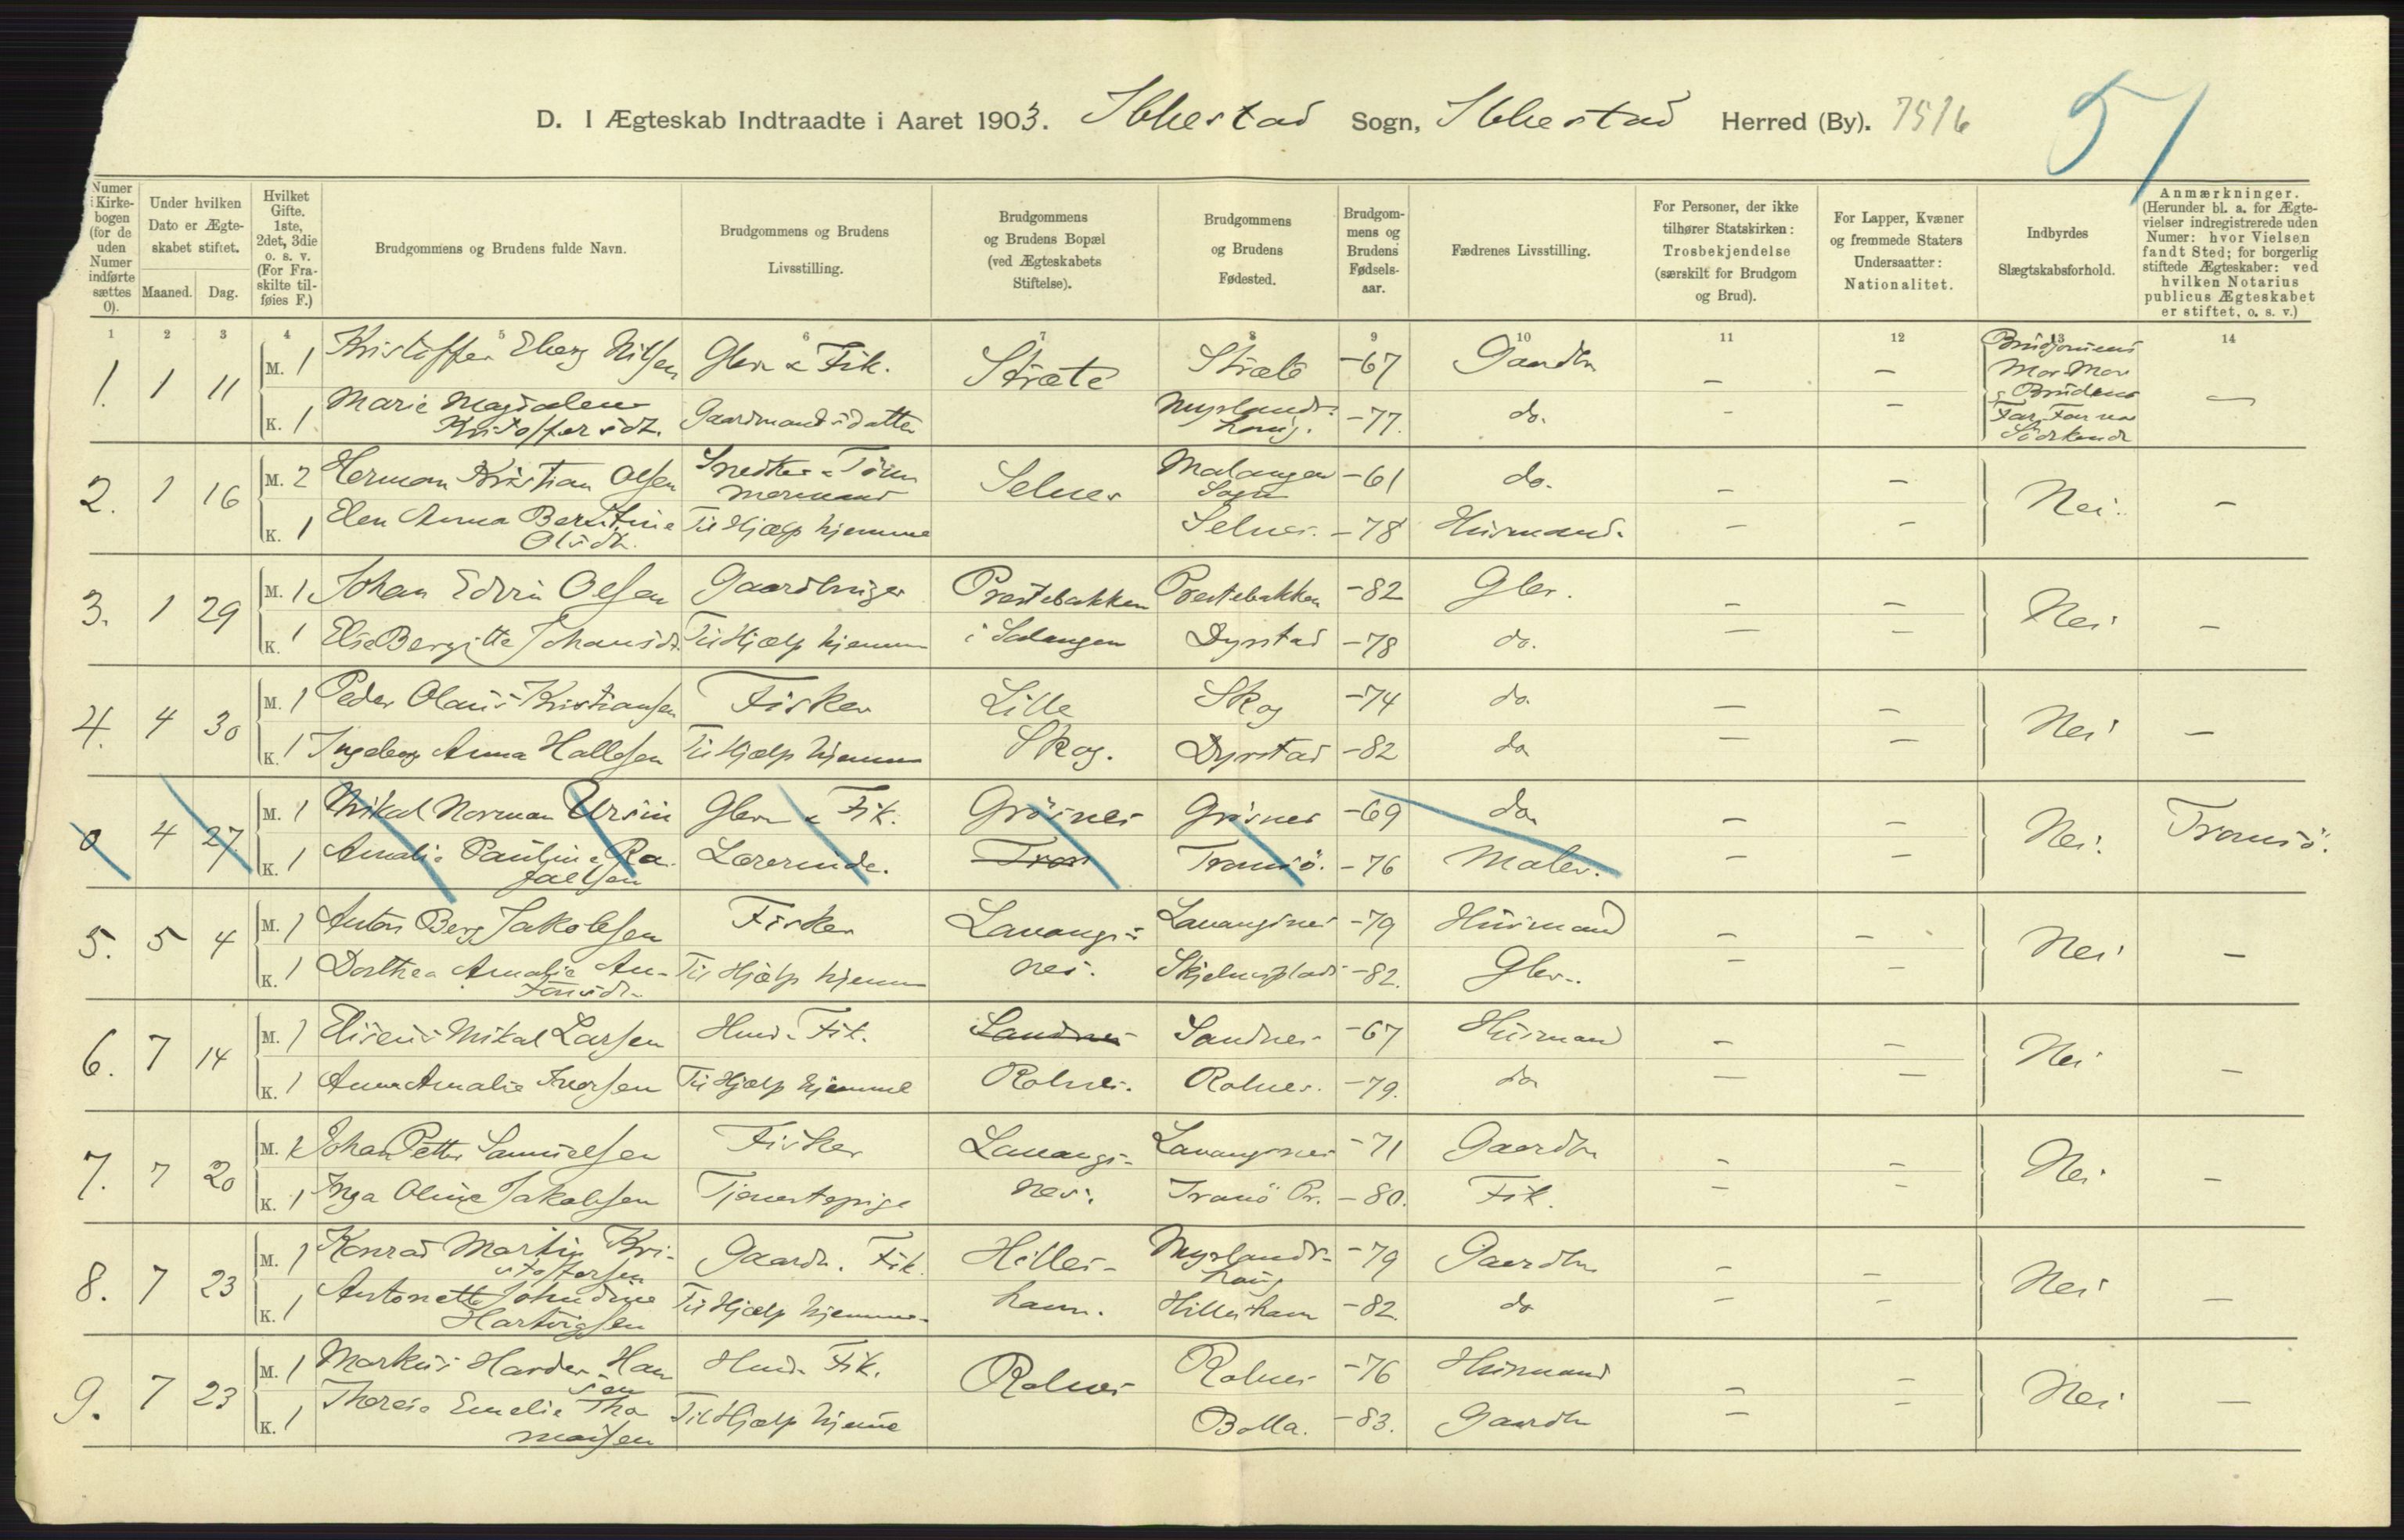 D. I Ægteskab Indtraadte i Aaret 1903. Ibbestad Sogn, Ibbestad Herred (By). 7516 51
Numer i Kirkebogen (for de uden Numer indførte sættes 0).
Under hvilken Dato er Ægteskabet stiftet.
Maaned. Dag.
Hvilket Gifte. 1ste, 2det, 3die o. s. v. (For Fraskilte tilføies F.)
Brudgommens og Brudens fulde Navn.
Brudgommens og Brudens Livsstilling.
Brudgommens og Brudens Bopæl (ved Ægteskabets Stiftelse).
Brudgommens og Brudens Fødested.
Brudgommens og Brudens Fødselsaar.
Fædrenes Livsstilling.
For Personer, der ikke tilhører Statskirken: Trosbekjendelse (særskilt for Brudgom og Brud).
For Lapper, Kvæner og fremmede Staters Undersaatter: Nationalitet.
Indbyrdes Slægtskabsforhold.
Anmærkninger. (Herunder bl. a. for Ægtevielser indregistrerede uden Numer: hvor Vielsen fandt Sted; for borgerlig stiftede Ægteskaber: ved hvilken Notarius publicus Ægteskabet er stiftet, o. s. v.)
1 2 3 4 5 6 7 8 9 10 11 12 13 14
1. 1 11 M. 1 Kristoffer Eberg Nilsen Gbr. & Fik. Stræte Stræte -67 Gaardbr — — Brudgomens Mor Mor
K. 1 Marie Magdalena Kristoffersdt. Gaardmandsdatter Myrlandshaug. -77. do. - — & Brudens Far Far var Södskende —
2. 1 16 M. 2 Herman Kristian Olsen Snedker & Tömmermand Selnes Malangen Sogn -61 do. — — Nei. —
K. 1 Elen Anna Berntine Olsdt. Til Hjælp hjemme Selnes. -78 Husmand. — —
3. 1 29 M. 1 Johan Edvin Olsen Gaardbruger Prestebakken Prestebakken -82 Gbr. — — Nei —
K. 1 Elie Bergitte Johansdt. Til Hjælp hjemme i Salangen Dyrstad -78 do. — —
4. 4 30 M. 1 Peder Olaus Kristiansen Fisker Lille Skog -74 do. — — Nei —
K. 1 Ingeborg Anna Hallesen Til Hjælp hjemme Skog. Dyrstad -82 do — —
0 4 27. M. 1 Mikal Norman Ursin Gbr. & Fik. Grösnes Grösnes -69 do. — — Nei. Tromsö.
K. 1 Amalie Pauline Rafaelsen Lærerinde. Trom Tromsö. -76 Maler. — —
5. 5 4 M. 1 Anton Berg Jakobsen Fisker Lavangs- Lavangsnes -79 Husmand — — Nei —
K. 1 Dorthea Amalie Antonsdt. Til Hjælp hjemme nes. -82. Gbr. — —
6. 7 14 M. 1 Eliseus Mikal Larsen Hmd. Fik. Sandnes Sandnes -67 Husmand — — Nei —
K. 1 Anna Amalie Iversen Til Hjælp hjemme Rolnes. Rolnes. -79. do — —
7. 7 20 M. Johan Petter Samuelsen Fisker Lavangs- Lavangsnes -71 Gaardbr — — Nei —
K. 1 Inga Oline Jakobsen Tjenestepige nes. Tranö Pr. -80. Fik. — —
8. 7 23 M. 1 Konrad Martin Kristoffersen Gaardbr. Fik. Hilles- Myrlandshaug -79 Gaardbr — — Nei —
K. 1 Antonette Johndine Hartvigsen Til Hjælp hjemme. hamn. Hilleshamn -82. do — —
9. 7 23 M. 1 Markus Harder Hansen Hmd. Fik. Rolnes Rolnes -76 Husmand — — Nei —
K. 1 Theresia Emelie Thomassen Til Hjælp hjeme Bolla. -83. Gaardbr — —